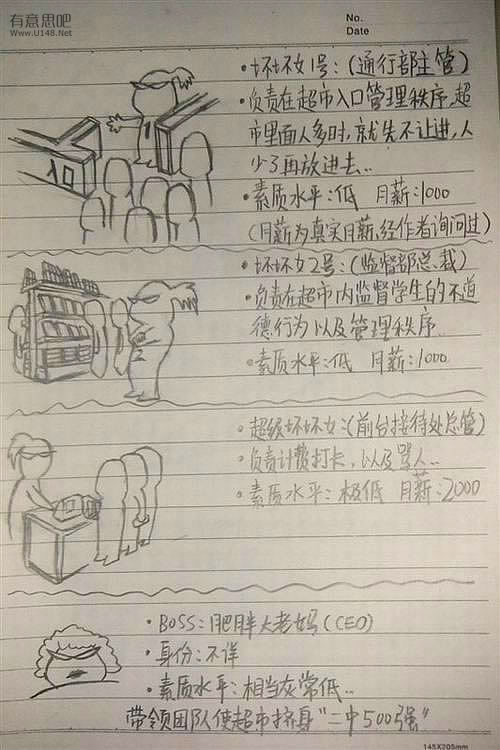 有意思吧
Www.U148.Net
No.
Date
·坏坏女1号:(通行部主管)
·负责在超市入口管理秩序,超
市里面人多时,就先不让进,人
少了再放进去..
·素质水平:低 月薪:1000
(月薪为真实月薪,经作者询问过)
·坏坏女2号:(监督部总裁)
·负责在超市内监督学生的不道
德行为以及管理秩序.
·素质水平:低 月薪:1000
·超级坏坏女:(前台接待处总管)
·负责计费打卡,以及骂人..
·素质水平:极低 月薪:2000
·BOSS:肥胖大老妈(CEO)
·身份:不详
·素质水平:相当灰常低..
带领团队使超市挤身"二中500强"
145X205mm